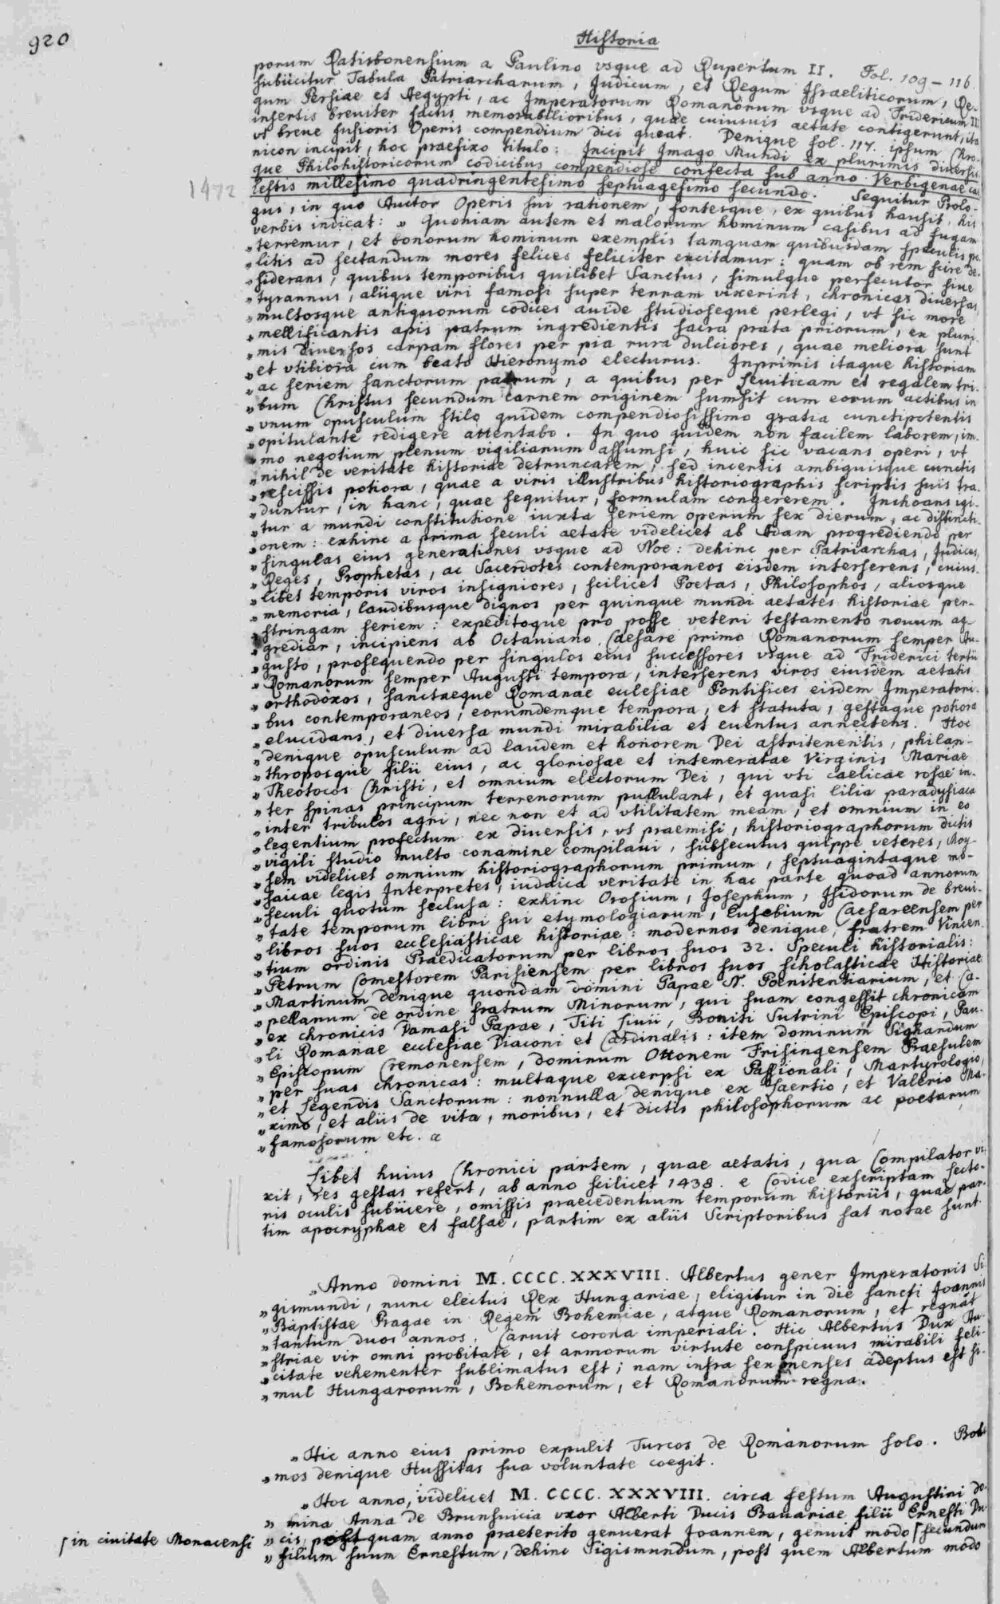 920
Historia
porum Ratisbonensium a Paulino vsque ad Rupertum II. Fol. 109-116.
subiicitur Tabula Patriarcharum, Judicum, et Regum Israeliticorum, Re-
gum Persiae et Aegypti, ac Imperatorum Romanorum vsque ad Fridericum III
insertis breuiter factis memorabilioribus, quae cuiusuis aetate contigerunt, ita
vt breue fusioris Operis compendium dici queat. Denique fol. 117. ipsum Chro-
nicon incipit, hoc praefixo titulo: Incipit Imago Mundi ex plurimis diuersis-
que Philohistoricorum codicibus compendiose confecta sub anno Verbigenae
1472 lestis millesimo quadringentesimo septuagesimo secundo. Sequitur Prolo-
gus, in quo Auctor Operis sui rationem, fontesque, ex quibus hausit, his
verbis indicat: „ Quoniam autem et malorum hominum casibus ad fugam
„ terremur, et bonorum hominum exemplis tamquam quibusdam speculis po-
„ litis ad sectandum mores felices feliciter excitamur: quam ob rem scire de-
„ siderans, quibus temporibus quilibet Sanctus, simulque persecutor siue
„ tyrannus, aliique viri famosi super terram vixerint, chronicas diuersas
„ multosque antiquorum codices auide studioseque perlegi, vt sic more
„ mellificantis apis patrum ingredientis sacra prata priorum, ex pluri-
„ mis diuersos carpam flores per pia rura dulciores, quae meliora sunt
„ et vtiliora cum beato Hieronymo electurus. Inprimis itaque historiam
„ ac seriem sanctorum patrum, a quibus per Leuiticam et regalem tri-
„ bum Christus secundum carnem originem sumsit cum eorum actibus in
„ vnum opusculum stilo quidem compendiosissimo gratia cunctipotentis
„ opitulante redigere attentabo. In quo quidem non facilem laborem, im-
„ mo negotium plenum vigiliarum assumsi, huic sic vacans operi, vt
„ nihil de veritate historiae detruncarem, sed incertis ambiguisque cunctis
„ rescissis potiora, quae a viris illustribus historiographis scriptis suis tra-
„ duntur, in hanc, quae sequitur, formulam congererem. Inchoans igi-
„ tur a mundi constitutione iuxta seriem operum sex dierum, ac distincti-
„ onem: exhinc a prima seculi aetate videlicet ab Adam progrediendo per
„ singulas eius generationes vsque ad Noe: dehinc per Patriarchas, Judices,
„ Reges, Prophetas, ac Sacerdotes contemporaneos eisdem interserens, cuius-
„ libet temporis viros insigniores, scilicet Poetas, Philosophos, aliosque
„ memoria, laudibusque dignos per quinque mundi aetates historiae per-
„ stringam seriem: expeditoque pro posse veteri testamento nouum ag-
„ grediar, incipiens ab Octauiano Caesare primo Romanorum semper Au-
„ gusto, prosequendo per singulos eius successores vsque ad Friderici tertii
„ Romanorum semper Augusti tempora, interserens viros eiusdem aetatis
„ orthodoxos, sanctaeque Romanae eclesiae Pontifices eisdem Imperatori-
„ bus contemporaneos, eorumdemque tempora, et statuta, gestaque potiora
„ elucidans, et diuersa mundi mirabilia et euentus annectens. Hoc
„ denique opusculum ad laudem et honorem Dei astritenentis, philan-
„ throposque filii eius, ac gloriosae et intemeratae Virginis Mariae
„ Theotocos Christi, et omnium electorum Dei, qui vti caelicae rosae in-
„ ter spinas principum terrenorum pullulant, et quasi lilia paradysiaca
„ inter tribulos agri, nec non et ad vtilitatem meam, et omnium in eo
„ legentium profectum ex diuersis, vt praemisi, historiographorum dictis
„ vigili studio multo conamine compilaui, subsecutus quippe veteres, Moy-
„ sem videlicet omnium historiographorum primum, septuagintaque mo-
„ saicae legis Interpretes, iudaica veritate in hac parte quoad annorum
„ seculi quotum seclusa: exhinc Orosium, Josephum, Isidorum de breui-
„ tate temporum libri sui etymologiarum, Eusebium Caesareensem per
„ libros suos ecclesiasticae historiae: modernos denique, fratrem Vincen-
„ tium ordinis Praedicatorum per libros suos 32. Speculi historialis:
„ Petrum Comestorem Parisiensem per libros suos scholasticae Historiae
„ Martinum denique quondam domini Papae N. Poenitentiarium, et Ca-
„ pellanum de ordine fratrum Minorum, qui suam congessit chronicam
„ ex chronicis Damasi Papae, Titi Liuii, Boniti Sutrini Episcopi, Pau-
„ li Romanae ecclesiae Diaconi et Cardinalis: item dominum Sighardum
„ Episcopum Cremonensem, dominum Ottonem Frisingensem Praesulem
„ per suas chronicas: multaque excerpsi ex Passionali, Martyrologio,
„ et Legendis Sanctorum: nonnulla denique ex Laertio, et Valerio Ma-
„ ximo, et aliis de vita, moribus, et dictis philosophorum ac poetarum
„ famosorum etc. a
Libet huius Chronici partem, quae aetatis, qua Compilator vi-
xit, res gestas refert, ab anno scilicet 1438. e Codice exscriptam lecto-
ris oculis subiicere, omissis praecedentium temporum historiis, quae par-
tim apocryphae et falsae, partim ex aliis Scriptoribus sat notae sunt.
„ Anno domini M. CCCC. XXXVIII. Albertus gener Imperatoris Si-
„ gismundi, nunc electus Rex Hungariae, eligitur in die sancti Joannis
„ Baptistae Pragae in Regem Bohemiae, atque Romanorum, et regnat
„ tantum duos annos. Caruit corona imperiali. Hic Albertus Dux Au-
„ striae vir omni probitate, et armorum virtute conspicuus mirabili feli-
„ citate vehementer sublimatus est; nam infra sex menses adeptus est si-
„ mul Hungarorum, Bohemorum, et Romanorum regna.
„ Hic anno eius primo expulit Turcos de Romanorum solo. Bohe-
„ mos denique Hussitas sua voluntate coegit.
„ Hoc anno, videlicet M. CCCC. XXXVIII. circa festum Augustini do-
„ mina Anna de Brunsuicia vxor Alberti Ducis Bauariae filii Ernesti Du-
⌈ in ciuitate Monacensi „ cis, postquam anno praeterito genuerat Joannem, genuit modo ⌈ secundum
„ filium suum Ernestum, dehinc Sigismundum, post quem Albertum modo